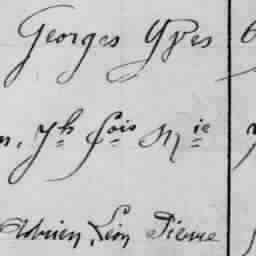 Georges Yves
n, Jh fois Mie
Adrien, Léon Pierre